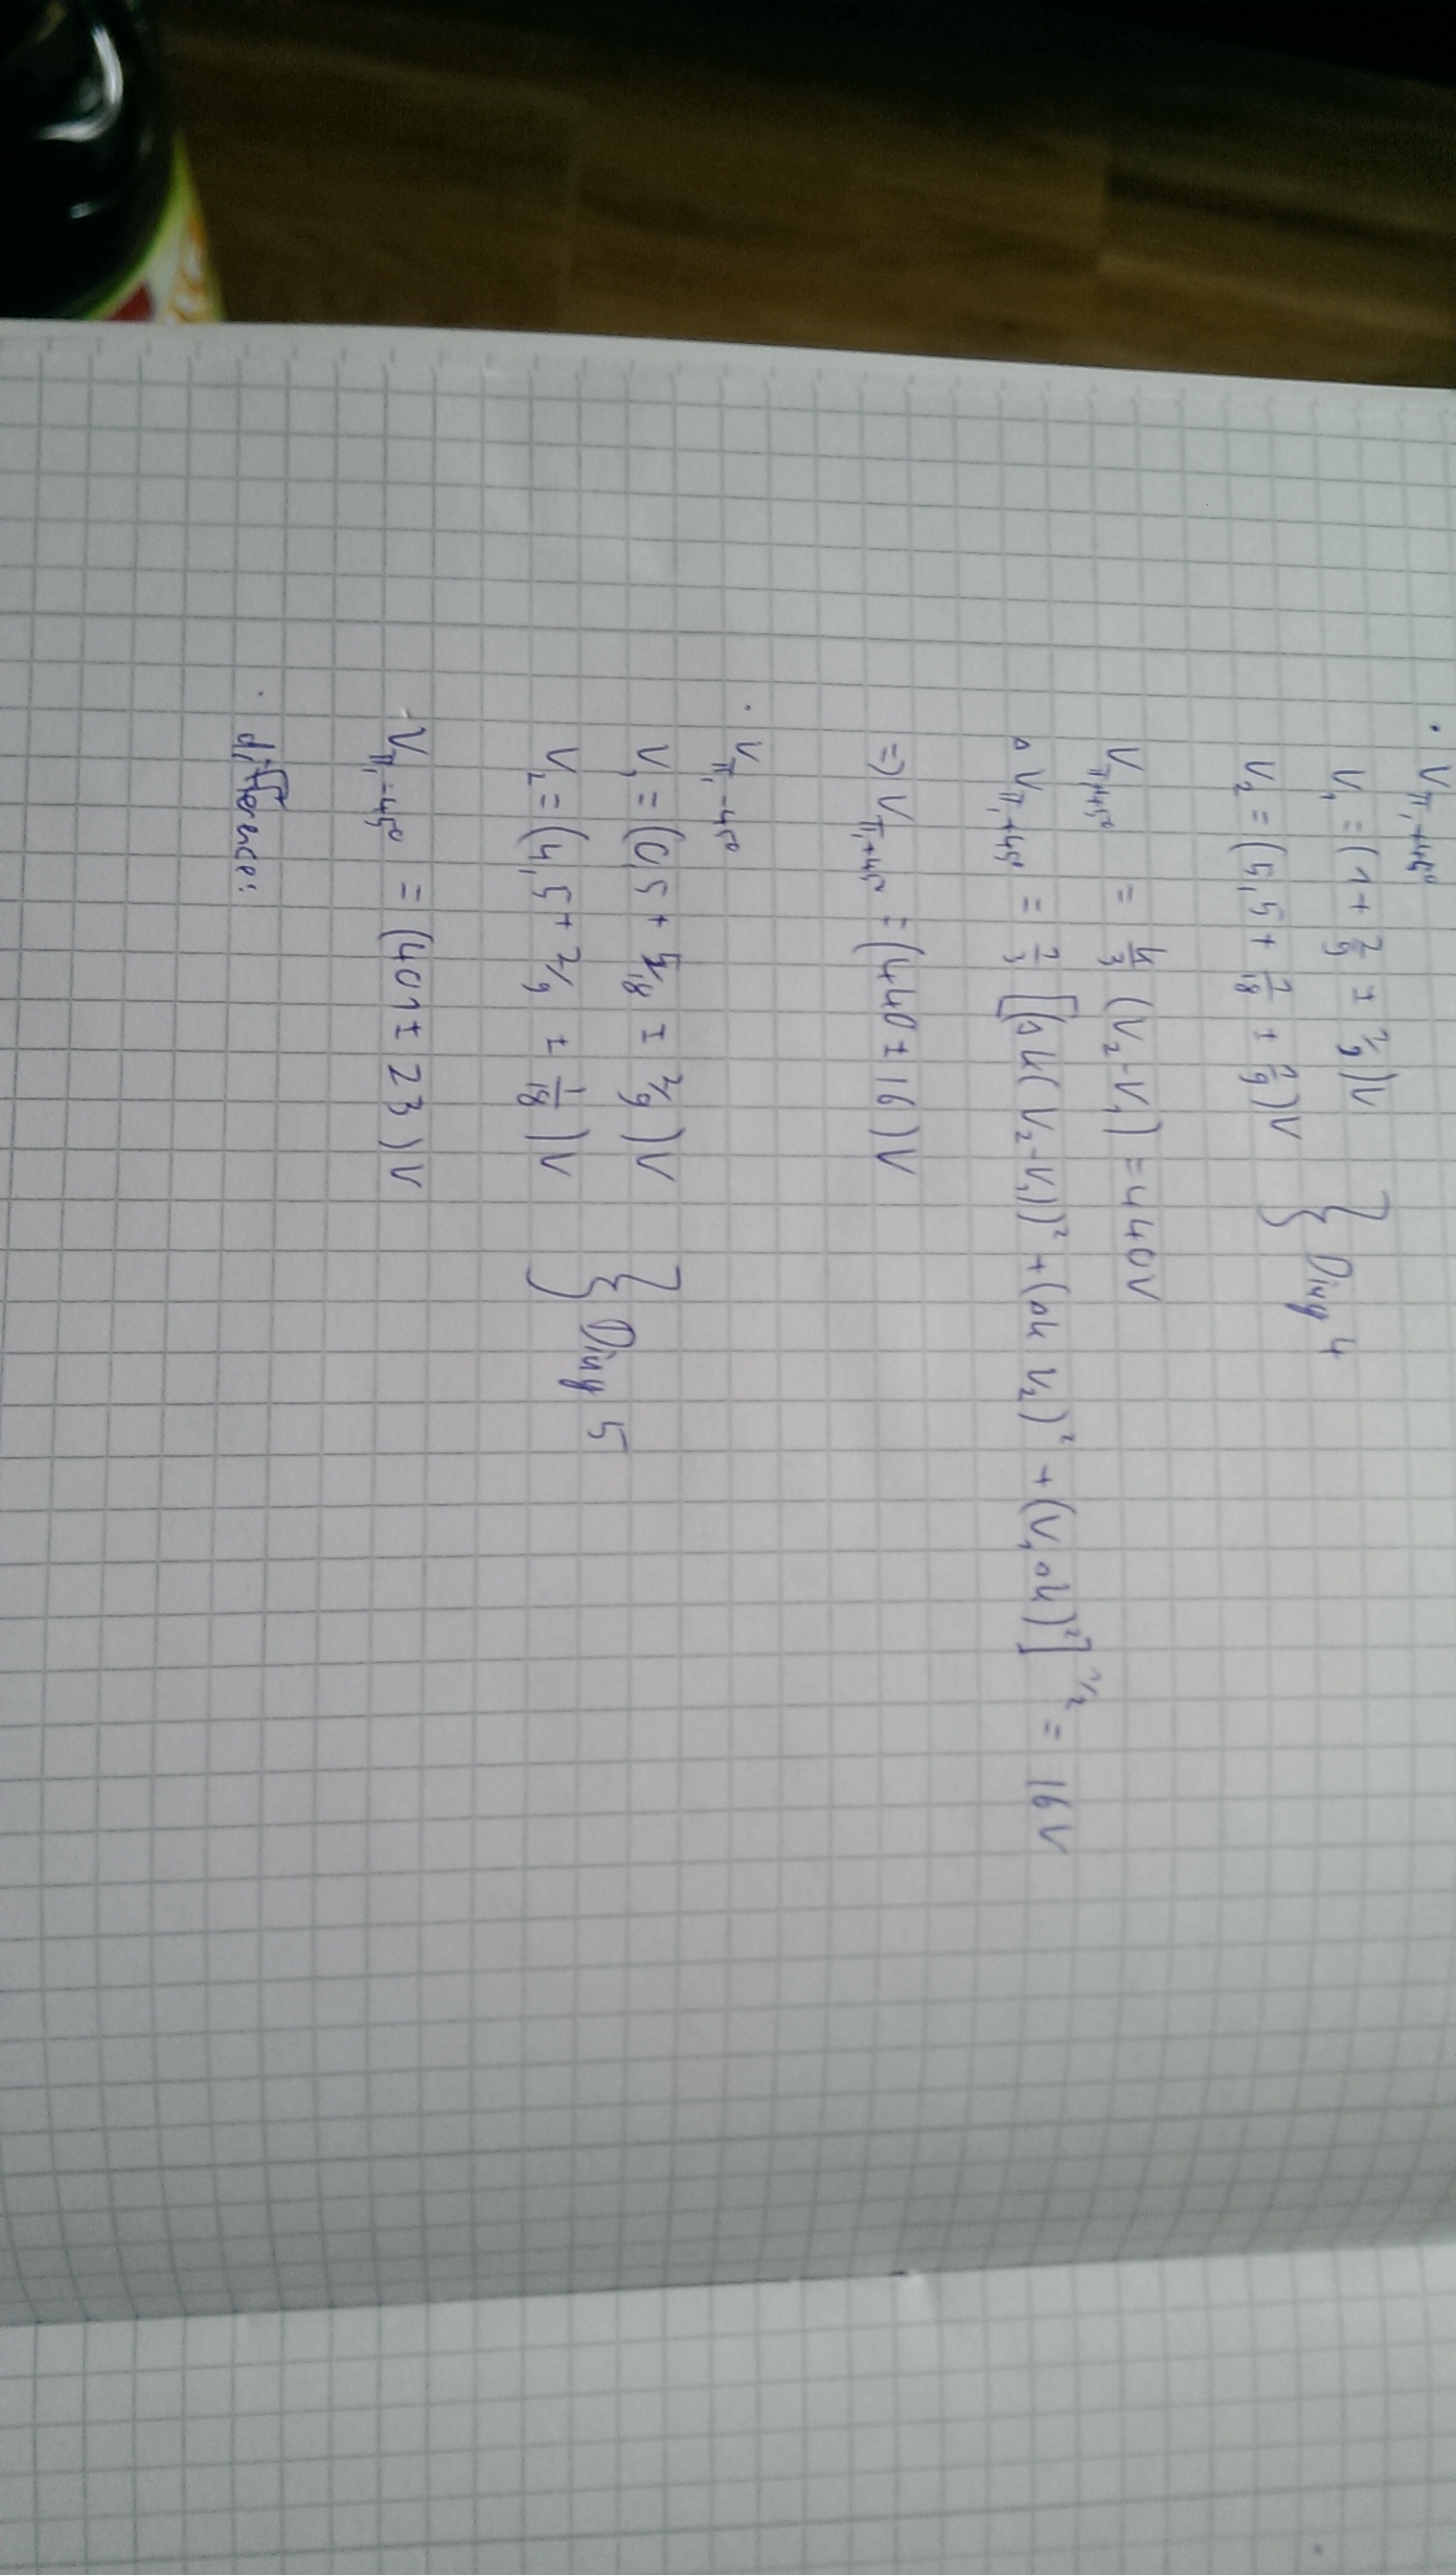 · Vπ,+45°
V₁ = (1 + 2/9 ± 1/9) V
V₂ = (5,5 + 1/18 ± 1/9) V } Diny 4
Vπ,+45° = k/3 (V₂ - V₁) = 440 V
ΔVπ,+45° = 1/3 [(Δk (V₂ - V₁))² + (Δk V₂)² + (V₁ Δk)²]^1/2 = 16 V
=> Vπ,+45° = (440 ± 16) V
· Vπ,-45°
V₁ = (0,5 + 5/18 ± 2/9) V
V₂ = (4,5 + 2/9 ± 1/18) V } Diny 5
Vπ,-45° = (401 ± 23) V
· difference: